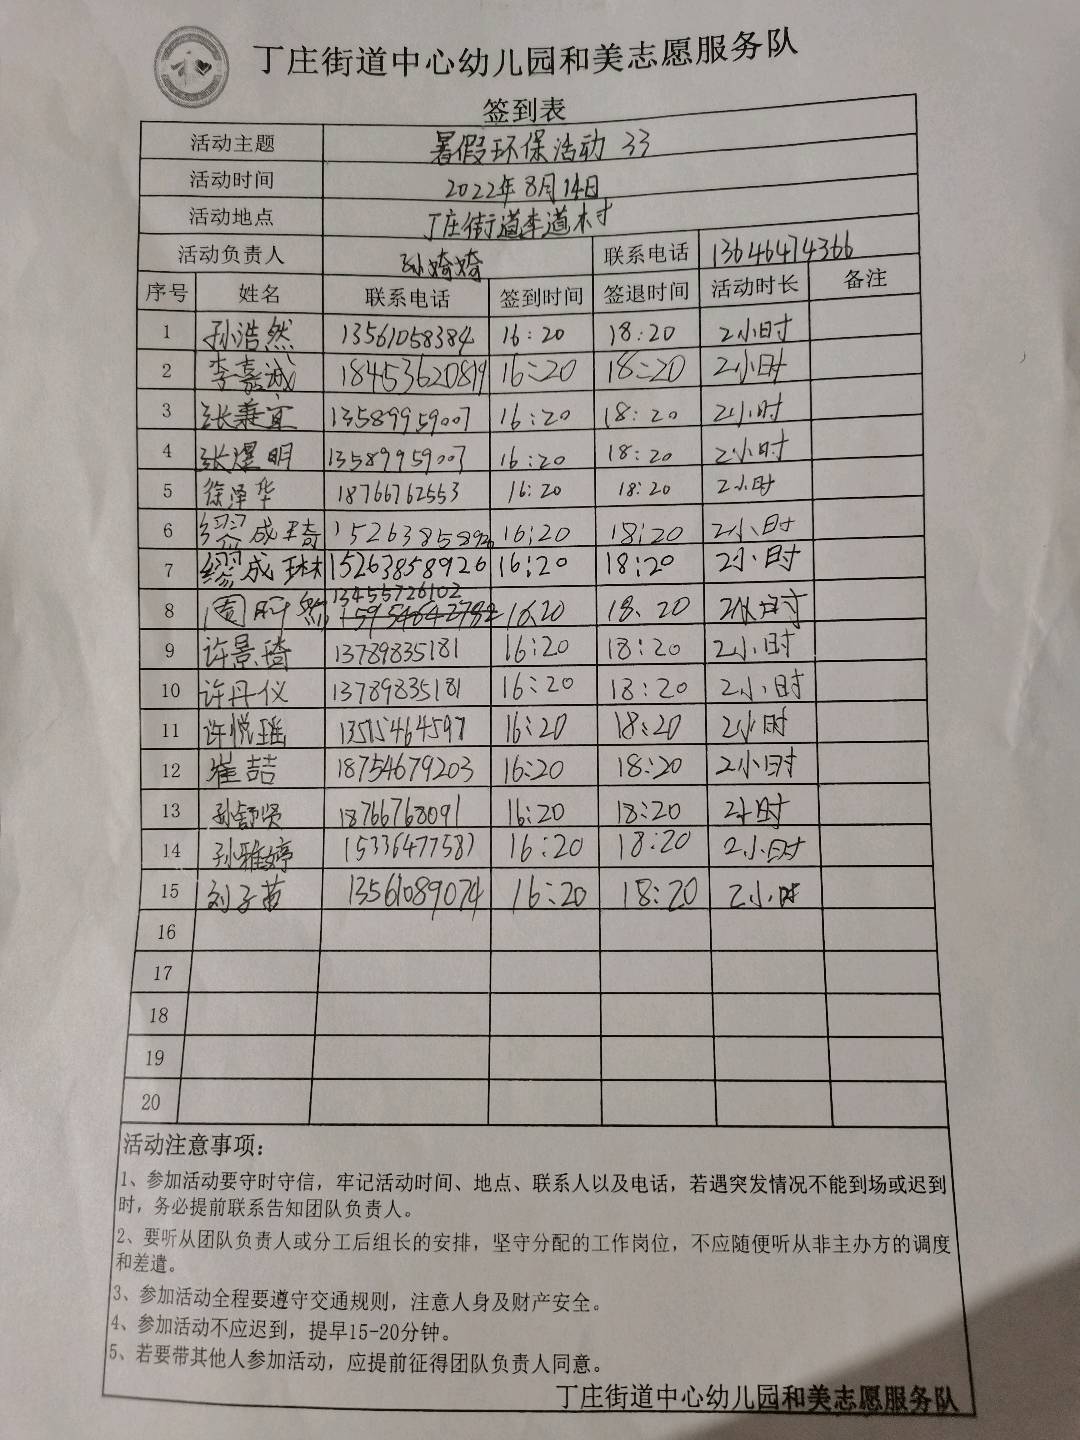 丁庄街道中心幼儿园和美志愿服务队
签到表
活动主题 暑假环保活动 33
活动时间 2022年8月14日
活动地点 丁庄街道李道村
活动负责人 孙婍婍 联系电话 13646474366
序号 姓名 联系电话 签到时间 签退时间 活动时长 备注
1 孙浩然 13561058384 16:20 18:20 2小时
2 李嘉诚 18453620819 16:20 18:20 2小时
3 张兼宜 13589959007 16:20 18:20 2小时
4 张煜明 13589959007 16:20 18:20 2小时
5 徐泽华 18766762553 16:20 18:20 2小时
6 缪成琦 15263858926 16:20 18:20 2小时
7 缪成琳 15263858926 16:20 18:20 2小时
8 13455726102 16:20 18:20 2小时
9 许景琦 13789835181 16:20 18:20 2小时
10 许丹仪 13789835181 16:20 18:20 2小时
11 许悦瑶 13515464597 16:20 18:20 2小时
12 崔喆 18754679203 16:20 18:20 2小时
13 孙舒贤 18766768091 16:20 18:20 2小时
14 孙雅婷 15336477587 16:20 18:20 2小时
15 刘子苗 13561089074 16:20 18:20 2小时
16
17
18
19
20
活动注意事项：
1、参加活动要守时守信，牢记活动时间、地点、联系人以及电话，若遇突发情况不能到场或迟到
时，务必提前联系告知团队负责人。
2、要听从团队负责人或分工后组长的安排，坚守分配的工作岗位，不应随便听从非主办方的调度
和差遣。
3、参加活动全程要遵守交通规则，注意人身及财产安全。
4、参加活动不应迟到，提早15-20分钟。
5、若要带其他人参加活动，应提前征得团队负责人同意。
丁庄街道中心幼儿园和美志愿服务队